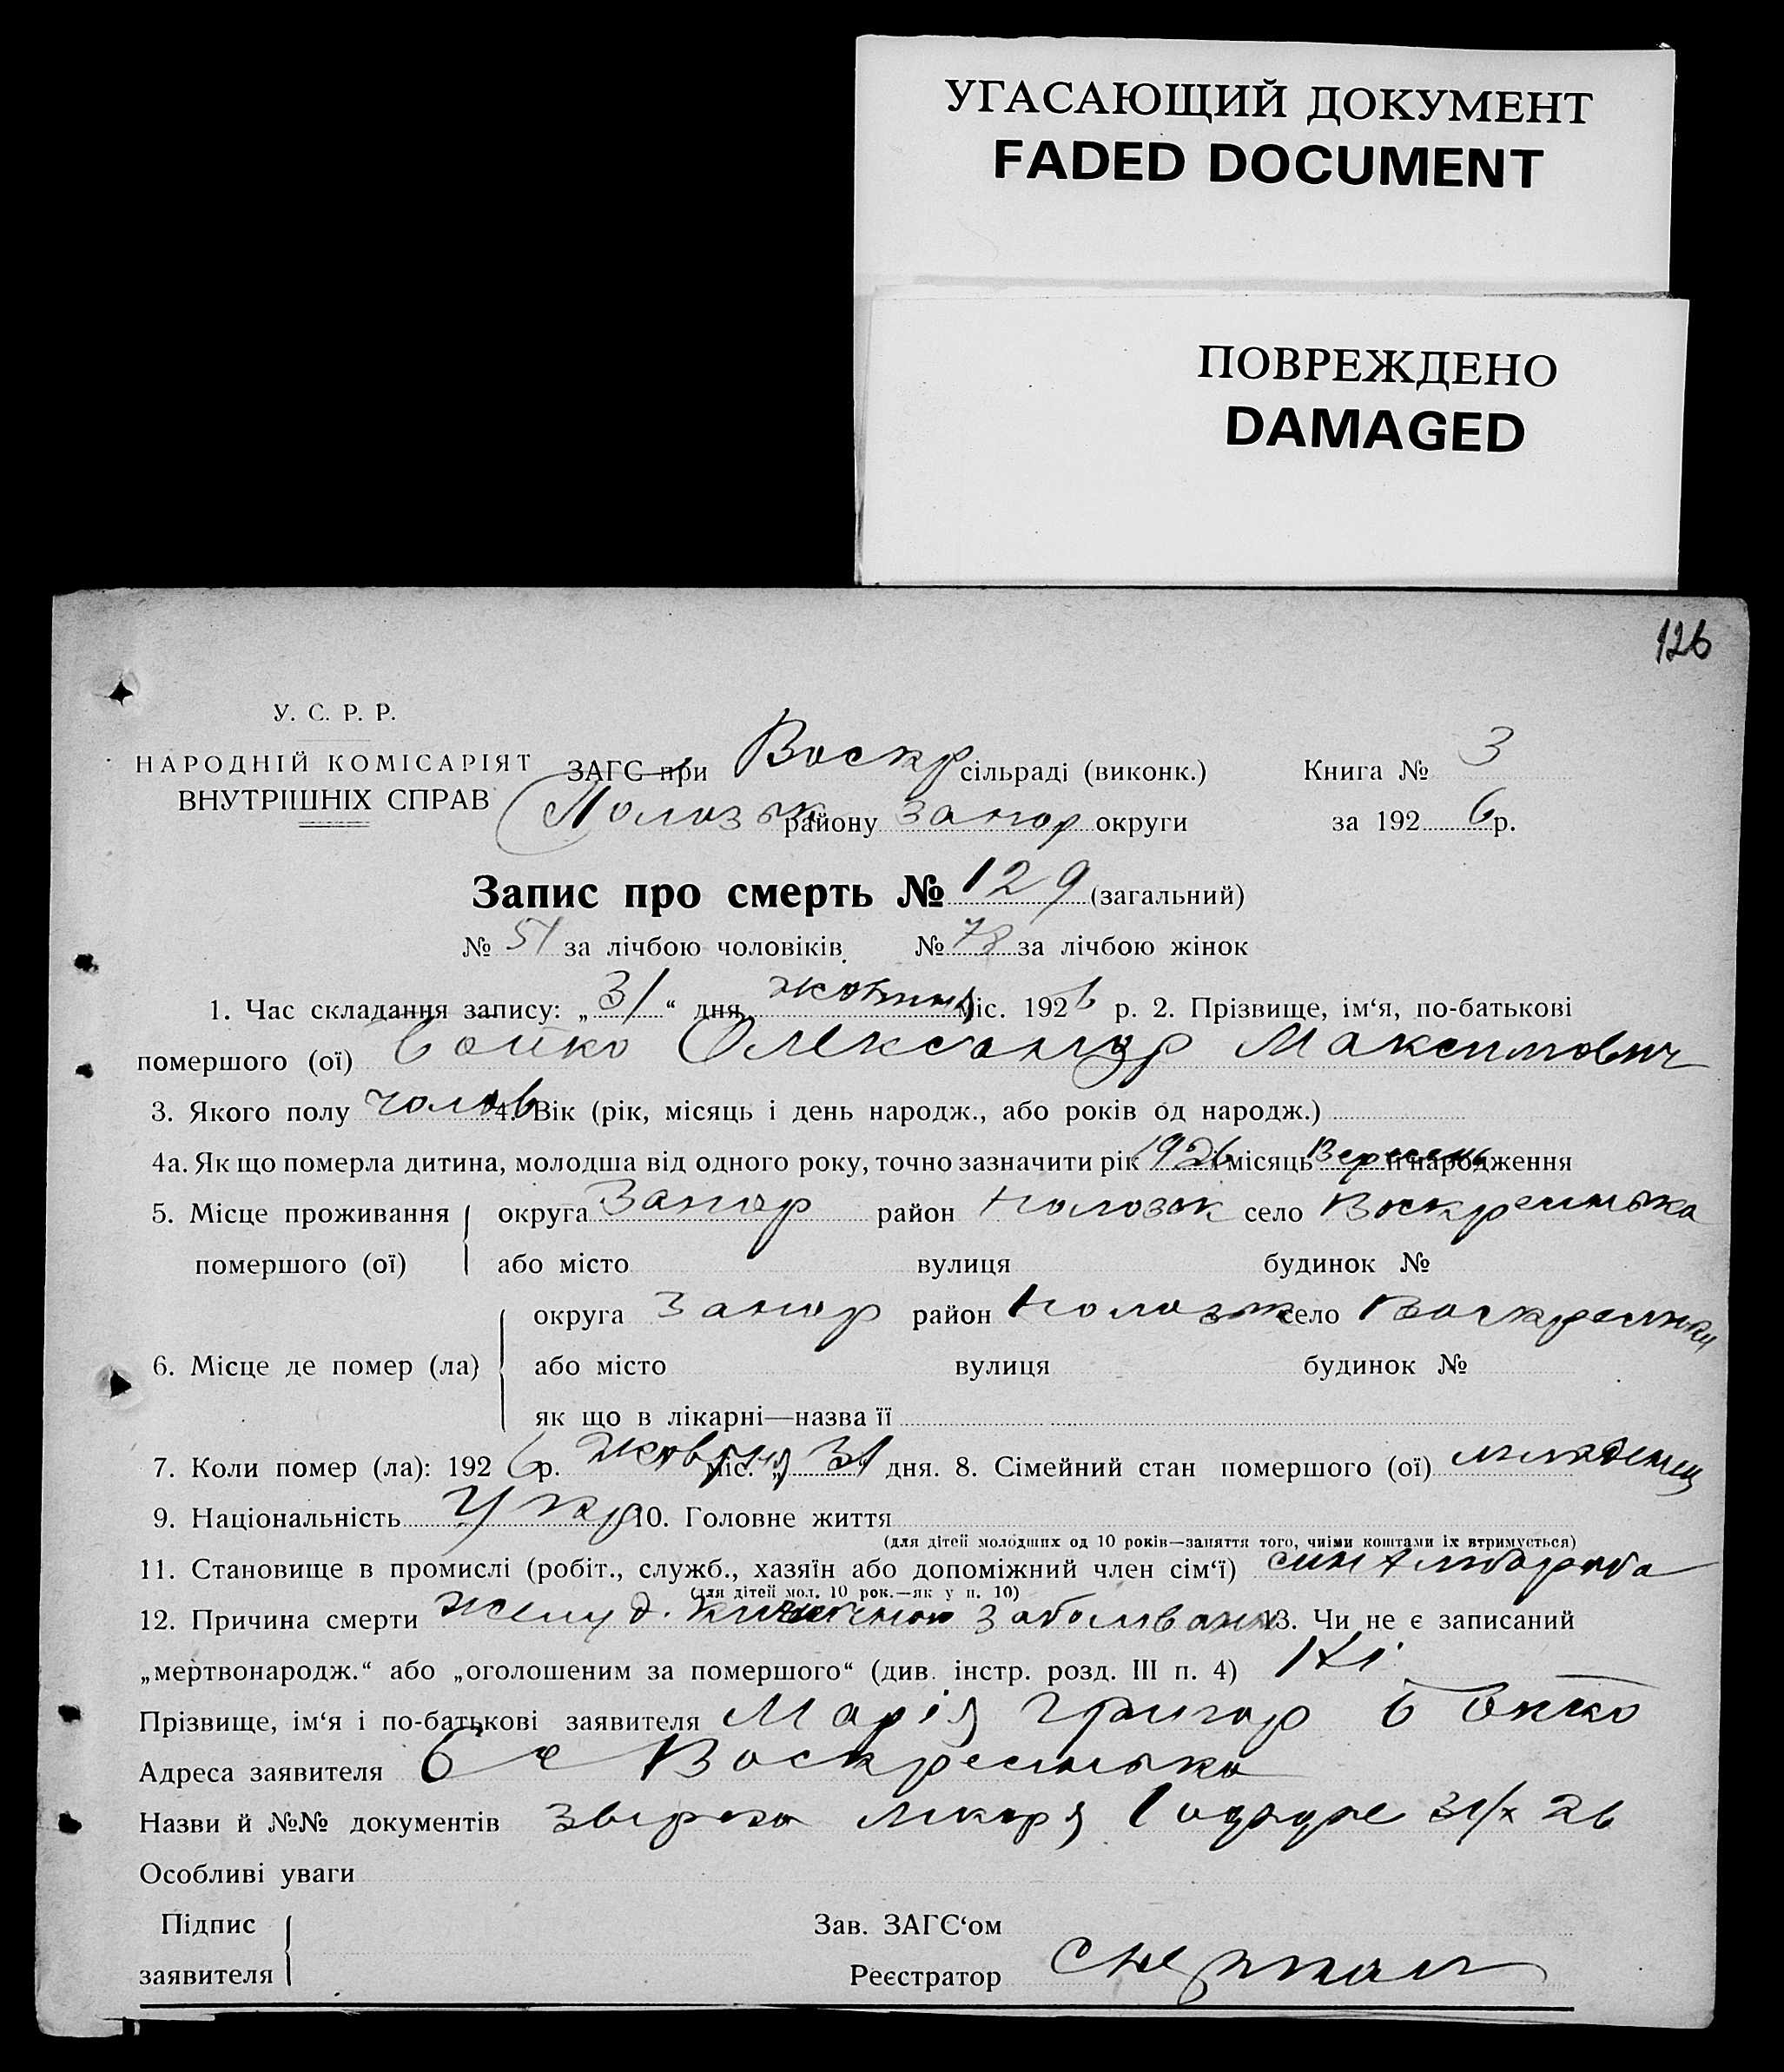 УГАСАЮЩИЙ ДОКУМЕНТ
FADED DOCUMENT
ПОВРЕЖДЕНО
DAMAGED
126
У. С. Р. Р.
НАРОДНІЙ КОМІСАРІЯТ
ВНУТРІШНІХ СПРАВ
ЗАГС при Воскр сільраді (виконк.) Книга № 3
району Запор округи за 192 6 р.
Запис про смерть № 129 (загальний)
№ 51 за лічбою чоловіків № 78 за лічбою жінок
1. Час складання запису: „ 31 “ дня жовтня міс. 192 6 р. 2. Прізвище, ім‘я, по-батькові
помершого (ої) Бойко Олександр Максимович
3. Якого полу чолов 4. Вік (рік, місяць і день народж., або років од народж.)
4а. Як що померла дитина, молодша від одного року, точно зазначити рік 1926 місяць Вересень її народження
5. Місце проживання округа Запор район Полозьк село Воскресенька
помершого (ої) або місто вулиця будинок №
округа Запор район Полозьк село Воскресенка
6. Місце де помер (ла) або місто вулиця будинок №
як що в лікарні—назва її
7. Коли помер (ла): 192 6 р. Жовтня міс. „ 31 дня. 8. Сімейний стан помершого (ої) младенец
9. Національність Укр 10. Головне життя
(для дітей молодших од 10 років—заняття того, чиїми коштами їх втримується)
11. Становище в промислі (робіт., служб., хазяїн або допоміжний член сім‘ї) син хлібороба
(для дітей мол. 10 рок.—як у п. 10)
12. Причина смерти желуд. 13. Чи не є записаний
„мертвонародж.“ або „оголошеним за помершого“ (див. інстр. розд. III п. 4) Ні
Прізвище, ім‘я і по-батькові заявителя Марія Григор Бойко
Адреса заявителя с Воскресенька
Назви й №№ документів лікаря 31/X 26
Особливі уваги
Підпис Зав. ЗАГС‘ом
заявителя Реєстратор